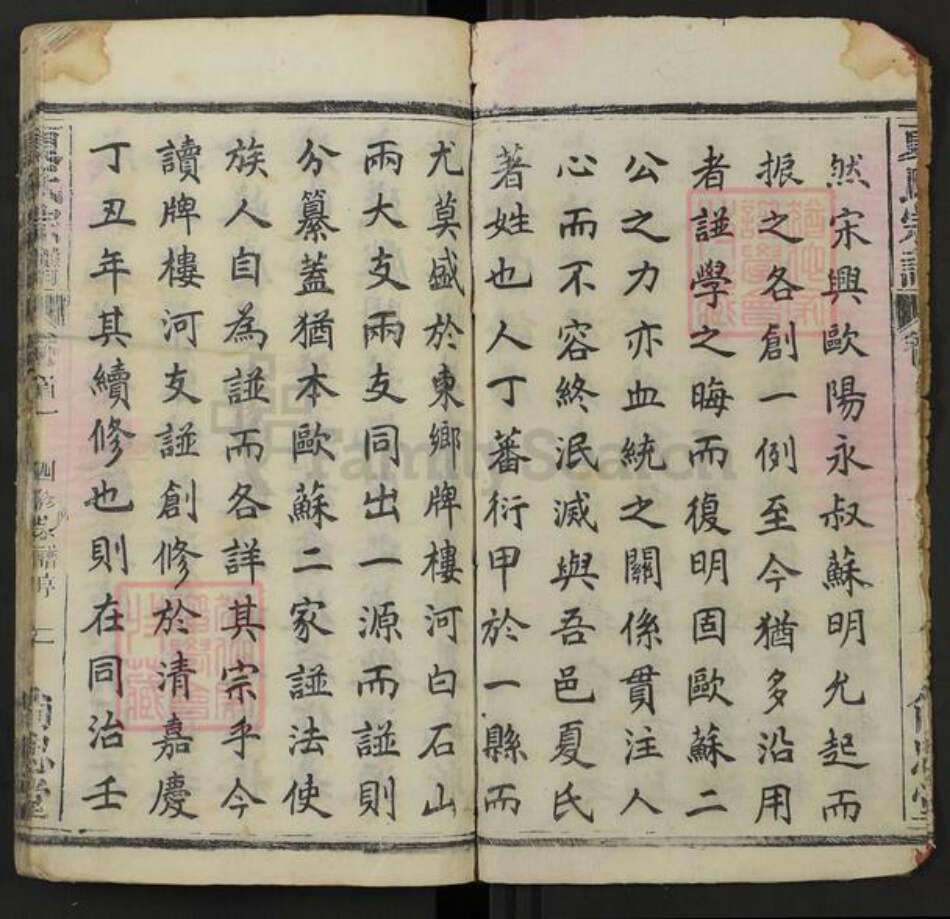 然宋興歐陽永叔蘇明允起而
振之各創一例至今猶多沿用
者諩學之晦而復明固歐蘇二
公之力亦血統之關係貫注人
心而不容終泯滅與吾邑夏氏
著姓也人丁蕃衍甲於一縣而
尤莫盛於東鄉牌樓河白石山
兩大支兩支同出一源而諩則
分纂蓋猶本歐蘇二家諩法使
族人自為諩而各詳其宗乎今
讀牌樓河支諩創修於清嘉慶
丁丑年其續修也則在同治壬
夏氏宗譜 卷首一 四修宗譜序 二
FamilySearch